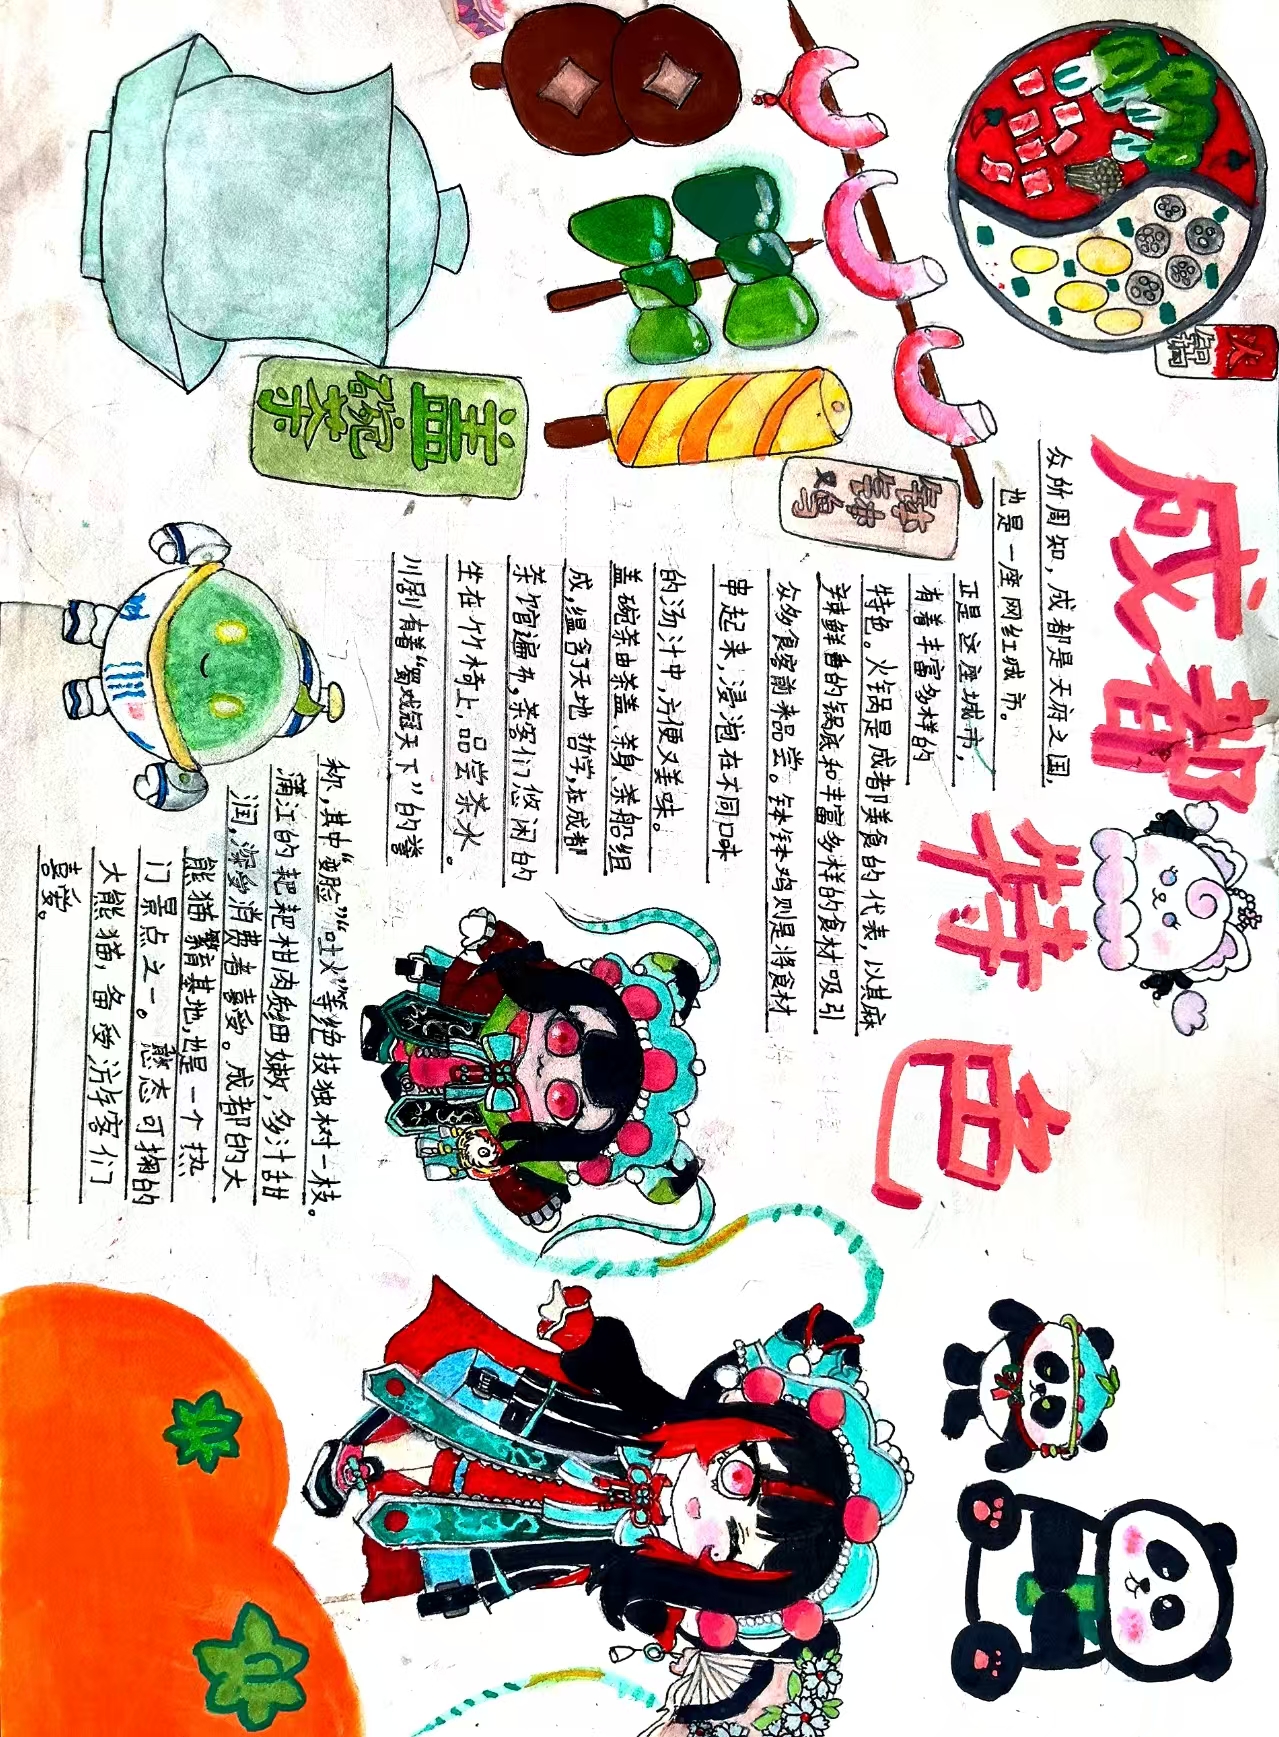 成都特色
火锅
钵钵鸡
盖碗茶
众所周知，成都是天府之国，
也是一座网红城市。
正是这座城市，
有着丰富多样的
特色。火锅是成都美食的代表，以其麻
辣鲜香的锅底和丰富多样的食材吸引
众多食客前来品尝。钵钵鸡则是将食材
串起来，浸泡在不同口味
的汤汁中，方便又美味。
盖碗茶由茶盖、茶身、茶船组
成，蕴含了天地哲学，在成都
茶馆遍布，茶客们悠闲的
坐在竹椅上，品尝茶水。
川剧有着“蜀戏冠天下”的誉
称，其中“变脸”“吐火”等绝技独树一枝。
蒲江的耙耙柑肉质细嫩，多汁甜
润，深受消费者喜爱。成都的大
熊猫繁育基地，也是一个热
门景点之一。憨态可掬的
大熊猫，备受游客们
喜爱。